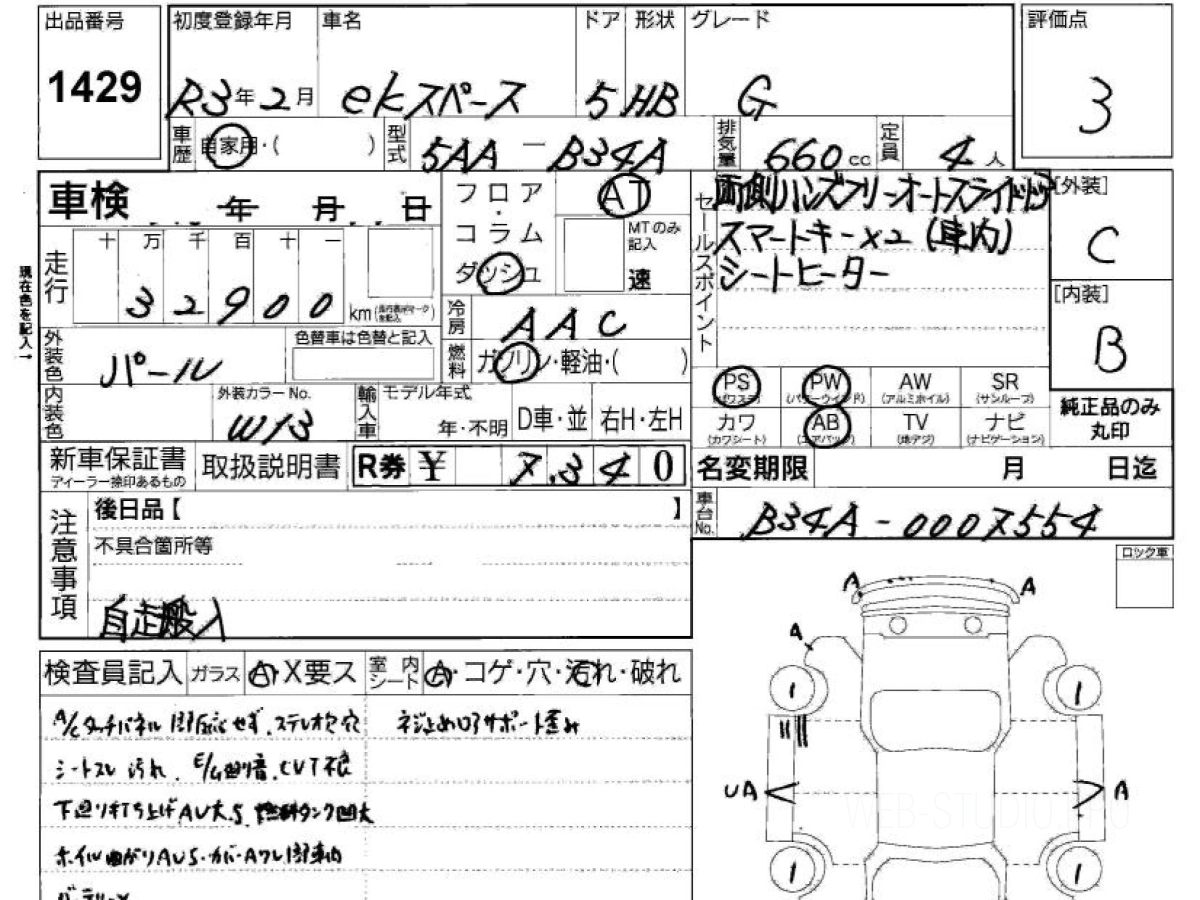 出品番号
1429
初度登録年月
R3年2月
車名
ekスペース
ドア
5
形状
HB
グレード
G
評価点
3
車歴
自家用・( )
型式
5AA - B34A
排気量
660 cc
定員
4人
車検 年 月 日
走行
十 万 千 百 十 一
3 2 9 0 0 km
現在色を記入→
フロア・コラム
ダッシュ
AT
MTのみ記入
速
冷房
AAC
燃料
ガソリン・軽油・( )
セールスポイント
両側ハンズフリーオートスライドドア
スマートキー×2(車内)
シートヒーター
[外装]
C
[内装]
B
外装色
パール
色替車は色替と記入
内装色
外装カラーNo.
W13
輸入車
モデル年式
年・不明
D車・並
右H・左H
PS
(パワステ)
PW
(パワーウインドウ)
AW
(アルミホイル)
SR
(サンルーフ)
カワ
(カワシート)
AB
(エアバック)
TV
(地デジ)
ナビ
(ナビゲーション)
純正品のみ
丸印
新車保証書
ディーラー捺印あるもの
取扱説明書
R券 ¥ 7.340
名変期限 月 日迄
車台No.
B34A-0007554
注意事項
後日品【 】
不具合箇所等
自走搬入
ロック車
検査員記入
ガラス
A・X要ス
室内シート
A・コゲ・穴・汚れ・破れ
A/Cタッチパネル 反応せず、ステレオ穴
ネジ止めロアサポート歪み
シートスレ 汚れ、E/G 音、CVT不良
下廻り打ち上げAU大、S、燃料タンク凹大
ホイル曲がりAUS・カバーAワレ
バッテリー×
A
A
A
1
1
UA
A
1
1
WEB-STUDIO.PRO